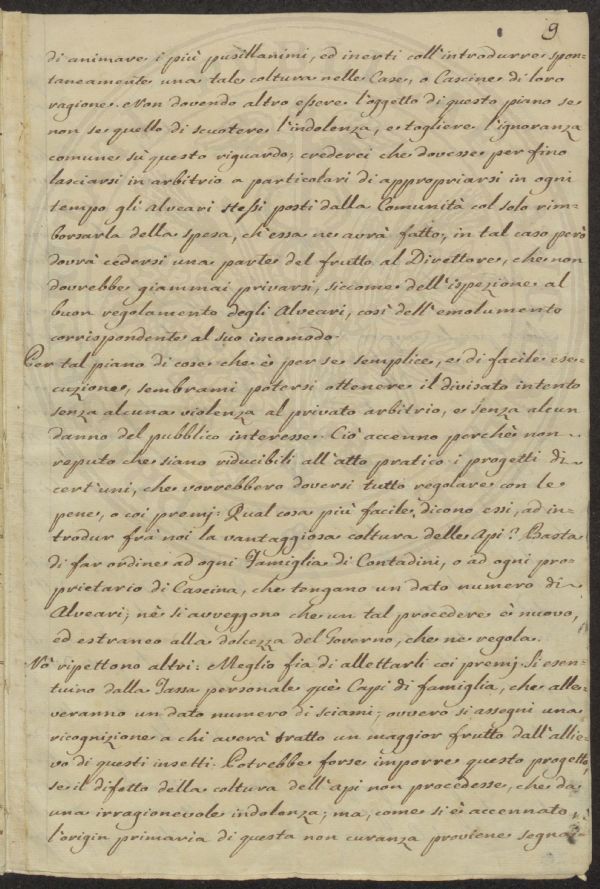 9
di animare i più pusillanimi, ed inerti coll'introdurre spon-
taneamente una tale coltura nelle Case, o Cascine di loro
ragione. Non dovendo altro essere l'oggetto di questo piano se
non se quello di scuotere l'indolenza, e togliere l'ignoranza
comune sù questo riguardo; crederei che dovesse per fino
lasciarsi in arbitrio a particolari di appropriarsi in ogni
tempo gli Alveari stessi posti dalla Comunità col solo rim-
borsarla della spesa, ch'essa ne avrà fatto; in tal caso però
dovrà cedersi una parte del frutto al Direttore, che non
dovrebbe giammai privarsi, siccome dell'ispezione al
buon regolamento degli Alveari, così dell'emolumento
corrispondente al suo incomodo.
Per tal piano di cose che è per se semplice, e di facile ese-
cuzione, sembrami potersi ottenere il divisato intento
senza alcuna violenza al privato arbitrio, e senza alcun
danno del pubblico interesse. Ciò accenno perchè non
reputo che siano riducibili all'atto pratico i progetti di
cert'uni, che vorrebbero doversi tutto regolare con le
pene, o coi premj: Qual cosa più facile, dicono essi, ad in-
trodur frà noi la vantaggiosa coltura delle Api? Basta
di far ordine ad ogni Famiglia di Contadini, o ad ogni pro-
prietario di Cascina, che tengano un dato numero di
Alveari; nè si avveggono che un tal procedere è nuovo,
ed estraneo alla dolcezza del Governo, che ne regola.
Nò ripettono altri: Meglio fia di allettarli coi premj. Si esen-
tuino dalla Tassa personale què Capi di famiglia, che alle-
veranno un dato numero di sciami; ovvero si assegni una
ricognizione a chi averà tratto un maggior frutto dall'allie-
vo di questi insetti. Potrebbe forse imporre questo progetto,
se il difetto della coltura dell'api non procedesse, che da
una irragionevole indolenza; ma, come si è accennato,
l'origin primaria di questa non curanza proviene segna-